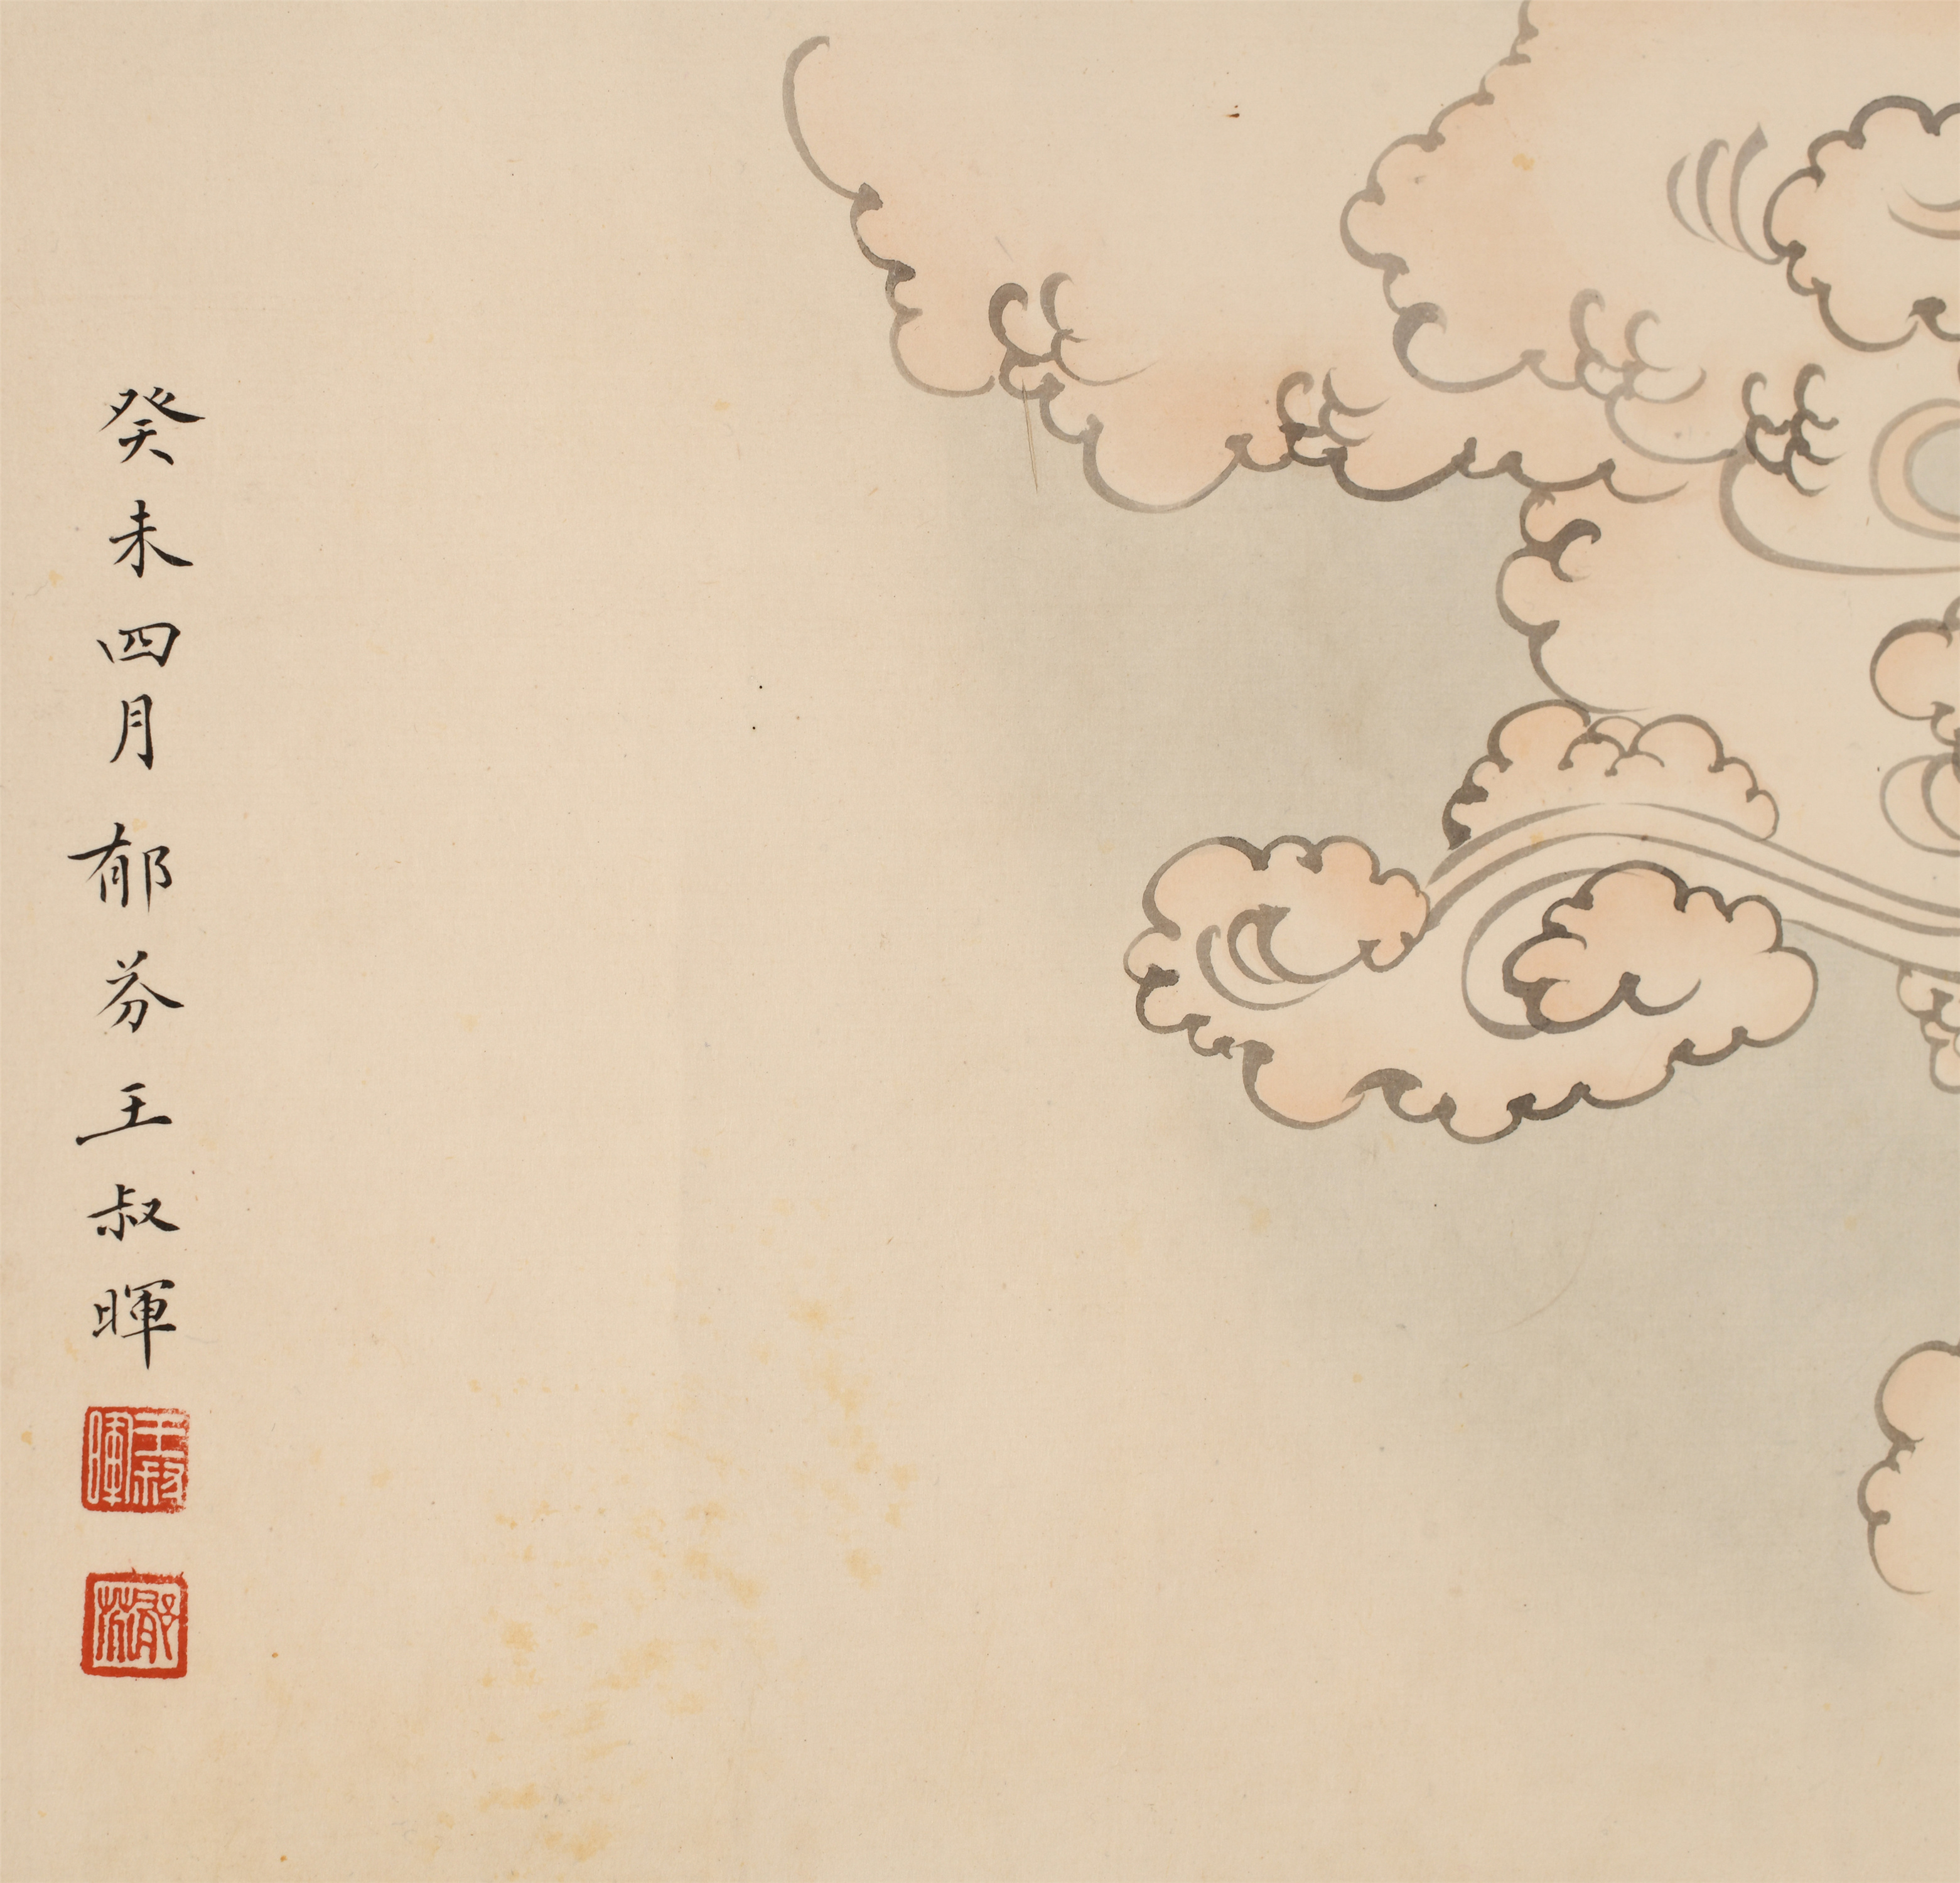 癸未四月郁芬王叔暉
王叔暉
郁芬